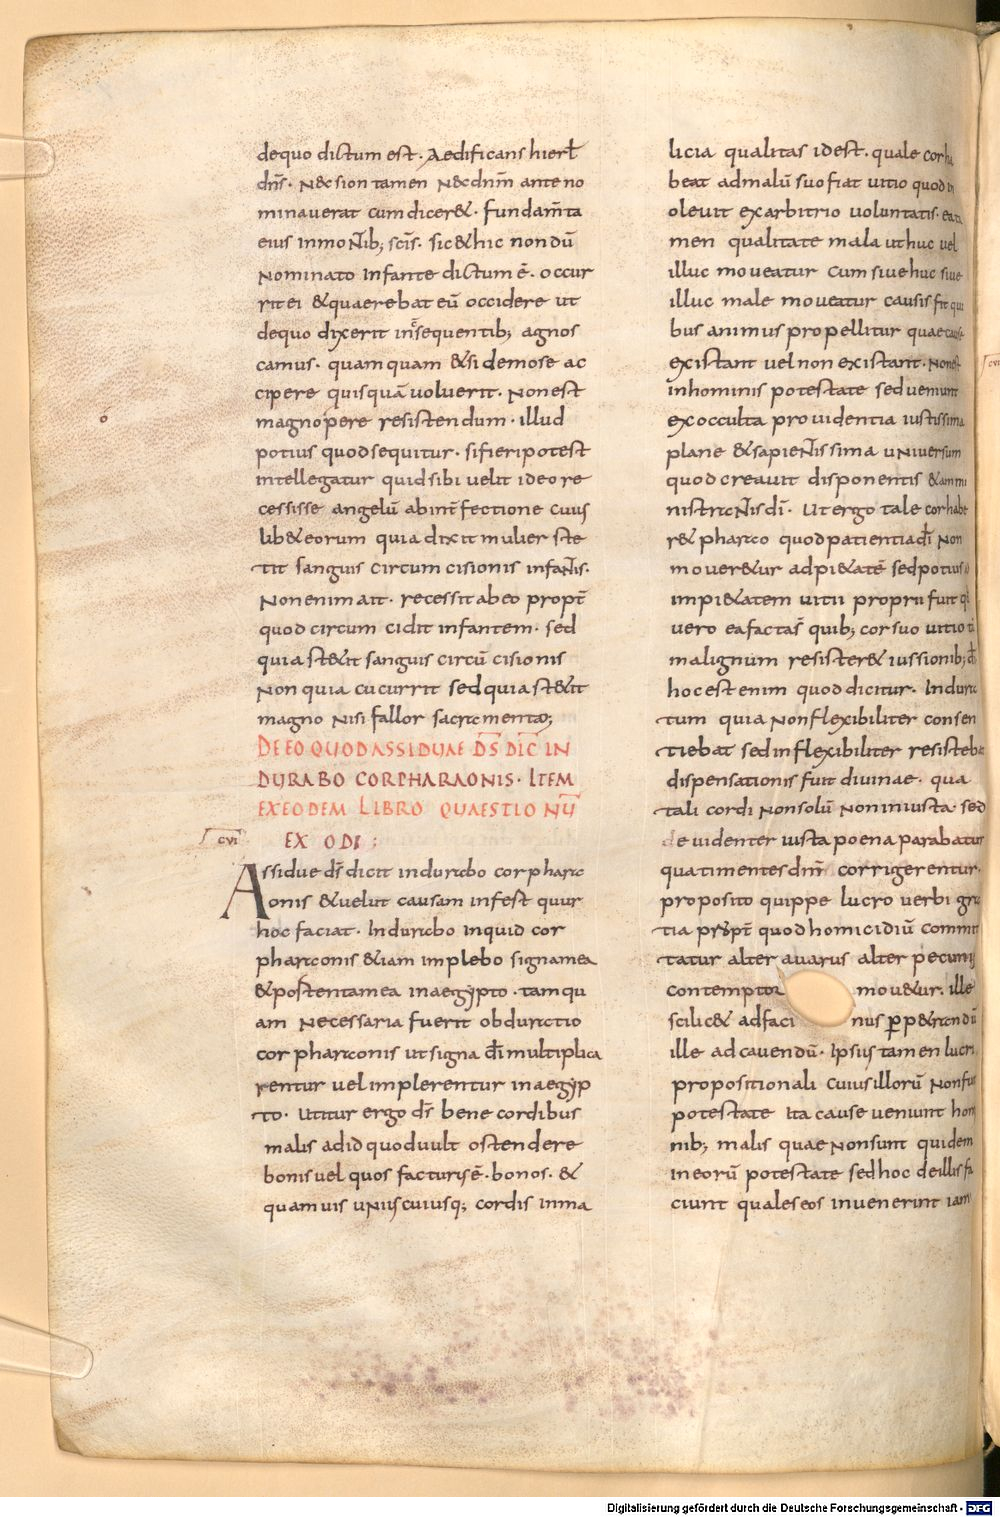 dequo dictum est. Aedificans hierł
dn̄s. Nec sion tamen Nec dnm̄ ante no
minauerat cum diceret. fundam̄ta
eius inmontib; sc̄is. sic & hic nondū
Nominato infante dictum ē. occur
rit ei & quaerebat eū occidere ut
dequo dixerit insequentib; agnos
camus. quamquam & si demose ac
cipere quisquā uoluerit. Non est
magnopere resistendum. illud
potius quod sequitur. si fieri potest
intellegatur quid sibi uelit ideo re
cessisse angelū ab interfectione cuius
lib& eorum quia dixit mulier ste
tit sanguis circumcisionis infantis.
Non enim ait. recessit ab eo propt̄
quod circumcidit infantem. sed
quia stetit sanguis circūcisionis
Non quia cucurrit sed quia stetit
magno nisi fallor sacramento;
DE EO QUOD ASSIDUAE DS̄ DIC̄ IN
DURABO COR PHARAONIS. ITEM
EX EODEM LIBRO QUAESTIONŪ
cvi EXODI;
Assidue ds̄ dicit indurabo cor phara
onis & uelut causam infert quur
hoc faciat. Indurabo inquid cor
pharaonis & iam implebo signa mea
& portenta mea in aegypto. tamqu
am Necessaria fuerit obduratio
cor pharaonis ut signa dī multiplica
rentur uel implerentur in aegyp
to. Utitur ergo ds̄ bene cordibus
malis ad id quod uult ostendere
bonis uel quos facturus ē. bonos. &
quamuis uniuscuiusq; cordis in ma
licia qualitas idest. quale cor ha
beat ad malū suo fiat uitio quod in
oleuit ex arbitrio uoluntatis. ea ta
men qualitate mala ut huc uel
illuc moueatur cum siue huc siue
illuc male moueatur causis fit qui
bus animus propellitur quae causae
existant uel non existant. Non est
in hominis potestate sed ueniunt
ex occulta prouidentia iustissima
plane & sapientissima uniuersum
quod creauit disponentis & ammi
nistrantis dī. Ut ergo tale cor habe
r& pharao quod patientia dī Non
mouer&ur ad pi&atē sed potius ad
impi&atem uitii proprii fuit
uero ea facta s̄ quib; cor suo uitio
malignum resister& iussionib;
hoc est enim quod dicitur. Indura
tum quia Non flexibiliter consen
tiebat sed inflexibiliter resisteb
dispensationis fuit diuinae. qua
tali cordi Nonsolū Non iniusta. sed
euidenter iusta poena parabatur
qua timentes dnm̄ corrigerentur.
proposito quippe lucro uerbi gra
tia propt̄ quod homicidiū commit
tatur alter auarus alter pecunię
contemptor mou&ur. ille
scilic& ad facinus perp&randū
ille ad cauendū. Ipsius tamen lucri
propositio nali cuius illorū Non fu
potestate Ita cause ueniunt homi
nib; malis quae Non sunt quidem
in eorū potestate sed hoc de illis fa
ciunt quales eos inuenerint iam
Digitalisierung gefördert durch die Deutsche Forschungsgemeinschaft - DFG